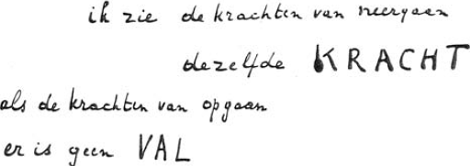 ik zie de krachten van neergaan
dezelfde KRACHT
als de krachten van opgaan
er is geen VAL